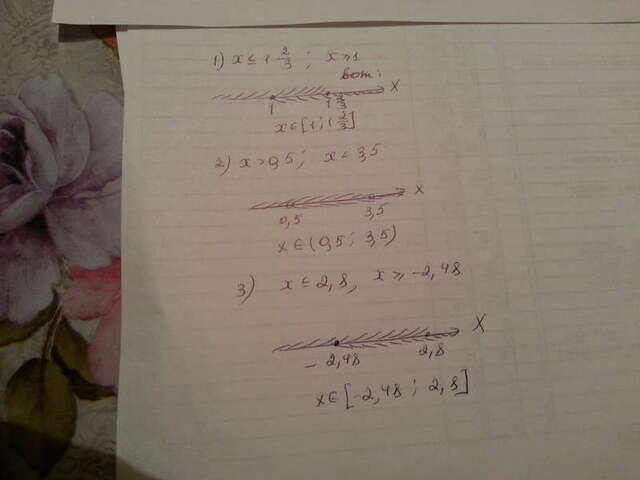 1) x ≤ 1 2/3 ; x ≥ 1
вот:
x
1 1 2/3
x ∈ [1 ; 1 2/3]
2) x > 0,5 ; x < 3,5
x
0,5 3,5
x ∈ (0,5 ; 3,5)
3) x ≤ 2,8, x ≥ -2,48
X
-2,48 2,8
x ∈ [-2,48 ; 2,8]